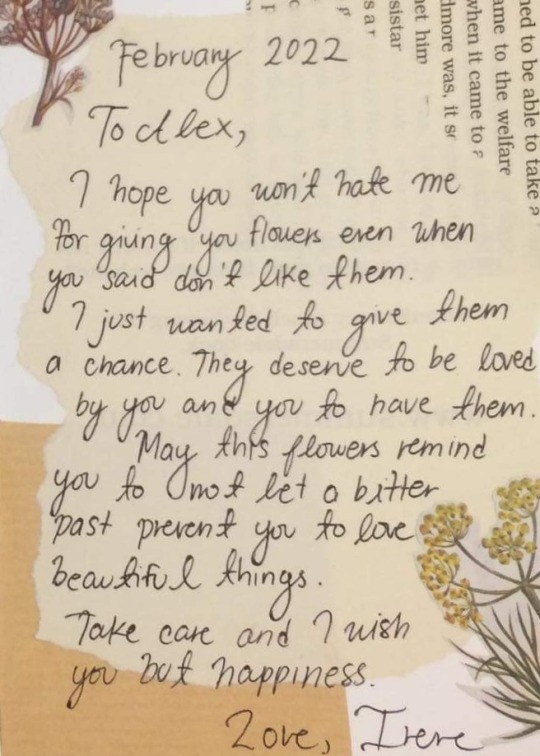 February 2022
To Alex,
I hope you won't hate me
for giving you flowers even when
you said don't like them.
I just wanted to give them
a chance. They deserve to be loved
by you and you to have them.
May this flowers remind
you to not let a bitter
past prevent you to love
beautiful things.
Take care and I wish
you but happiness.
Love, Irene
ned to be able to take a
ame to the welfare
when it came to
dmore was, it so
net him
sistar
s a r